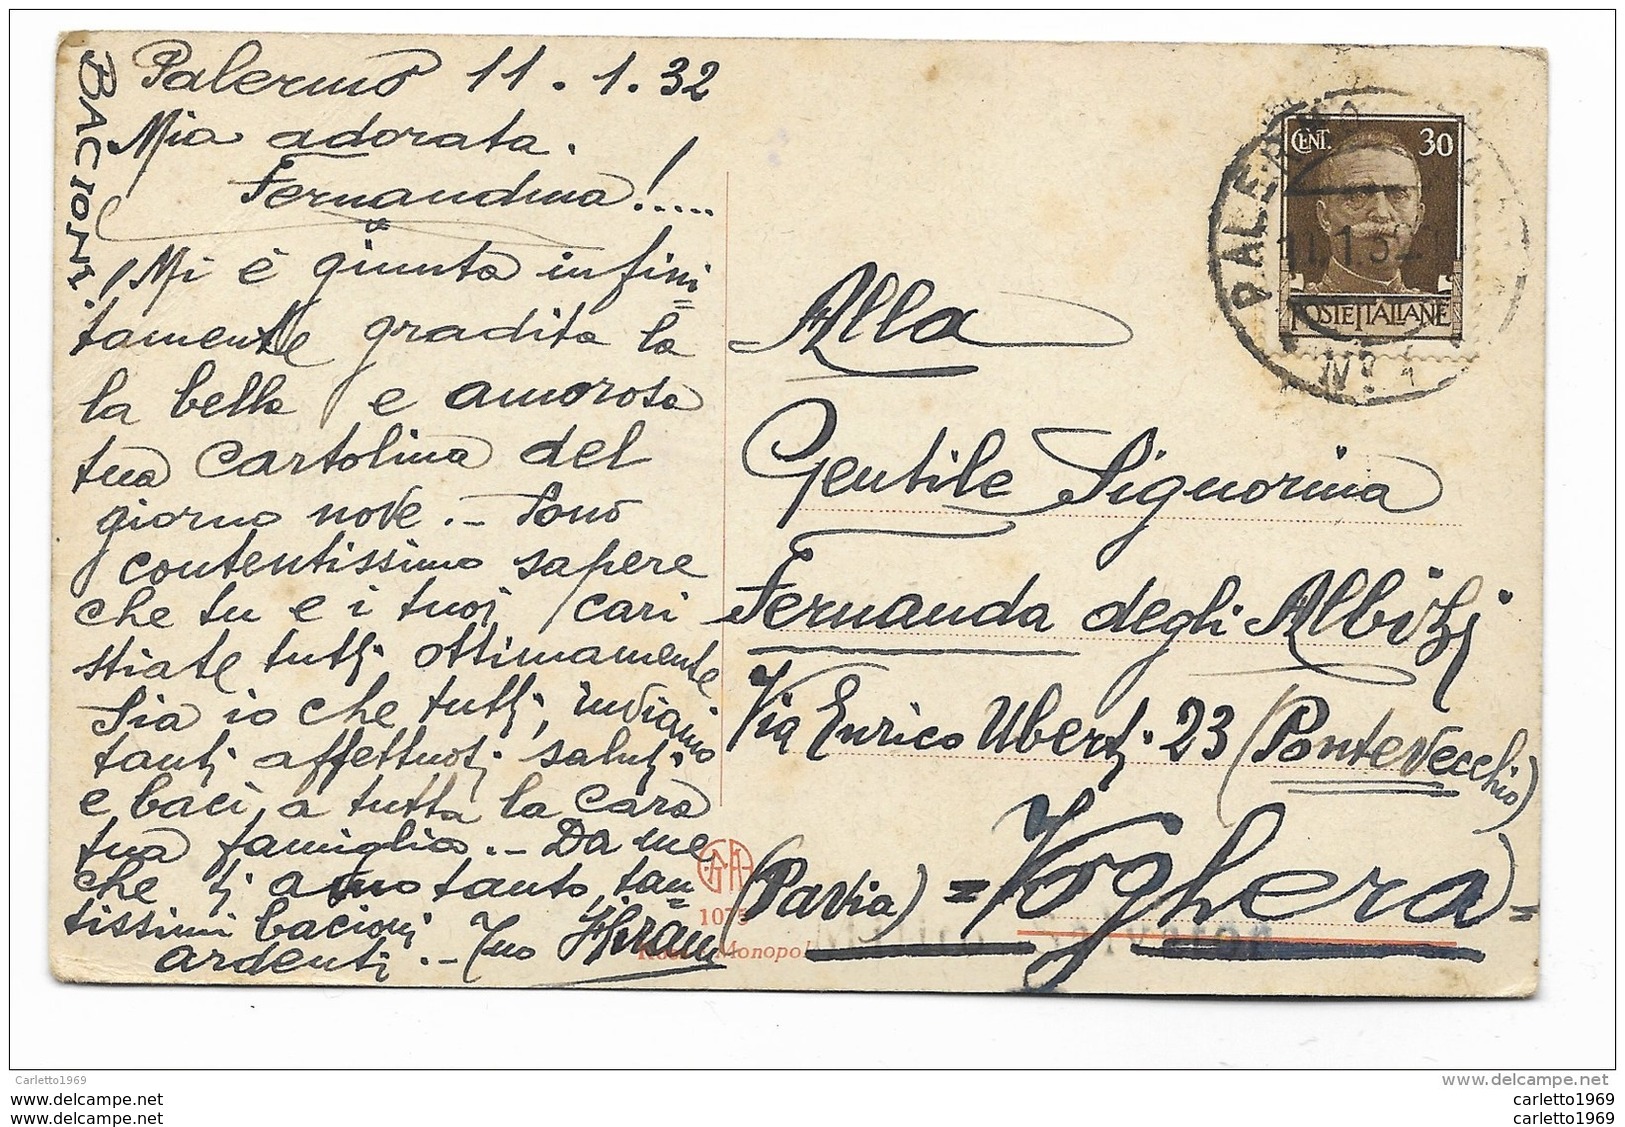 Palermo 11.1.32
Mia adorata.
Fernandina!.....
Mi è giunta infini=
tamente gradita la
la bella e amorosa
tua cartolina del
giorno nove.- Sono
contentissimo sapere
che tu e i tuoi cari
stiate tutti ottimamente
Sia io che tutti, inviamo
tanti affettuosi saluti
e baci a tutta la cara
tua famiglia.- Da me
che ti amo tanto, tan=
tissimi bacioni
ardenti.- Tuo
BACIONI.
CENT. 30
POSTE ITALIANE
PALERMO
11.1.32
Nº 1
Alla
Gentile Signorina
Fernanda degli Albizzi
Via Enrico Uberti. 23 (Pontevecchio)
(Pavia) =Voghera=
1075
Monopol
Carletto1969
www.delcampe.net
carletto1969
carletto1969
carletto1969
carletto1969